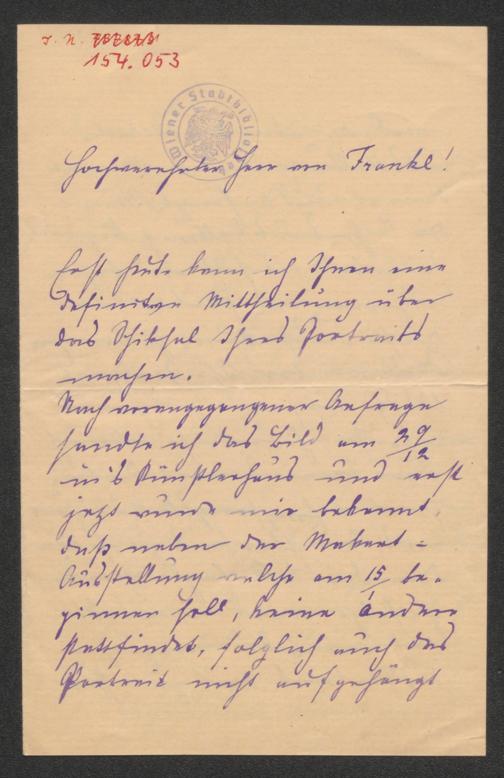 J. N.
154.053
Wiener Stadtbibliothek
Hochverehrter Herr von Frankl!
Erst heute kann ich Ihnen eine
definitive Mittheilung über
das Schiksal Ihres Portraits
machen.
Nach vorangegangener Anfrage
sandte ich das Bild am 29/12
in's Künstlerhaus und erst
jetzt wurde mir bekannt,
daß neben der Makart-
Ausstellung welche am 15/1 be-
ginnen soll, keine andere
stattfindet, folglich auch das
Portrait nicht aufgehängt